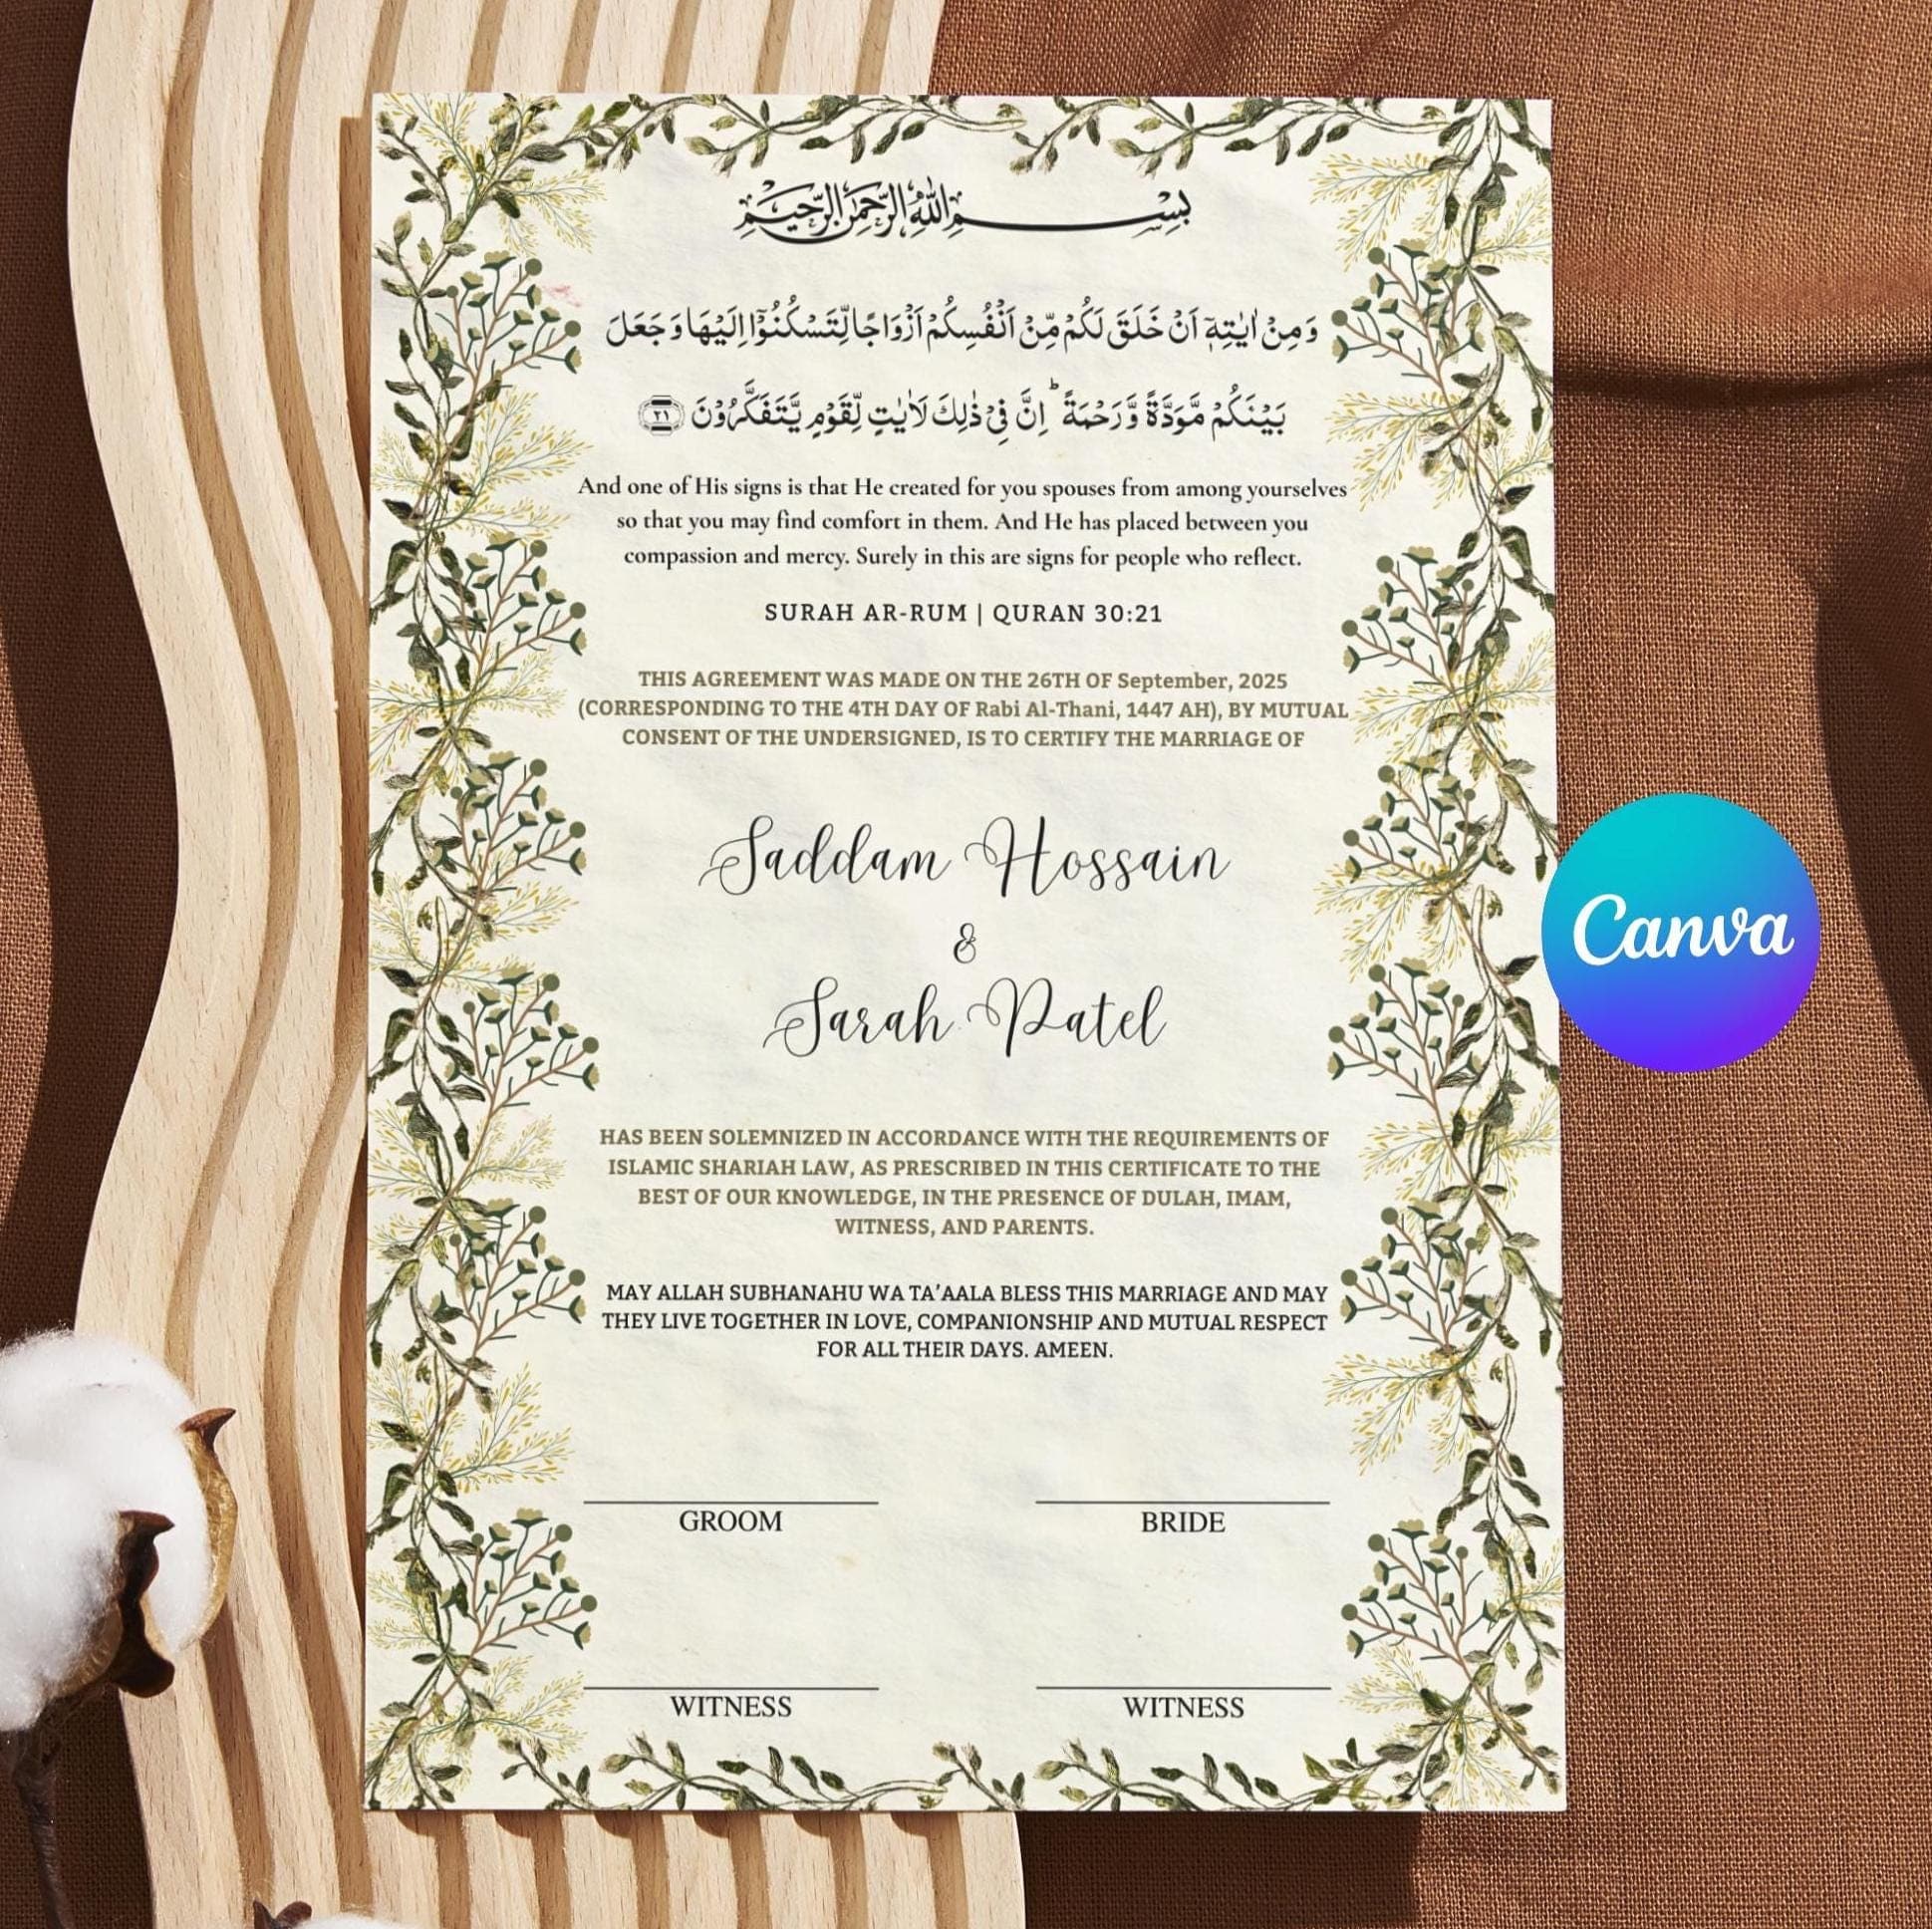 بِسْمِ اللهِ الرَّحْمٰنِ الرَّحِيْمِ
وَمِنْ اٰيٰتِهٖٓ اَنْ خَلَقَ لَكُمْ مِّنْ اَنْفُسِكُمْ اَزْوَاجًا لِّتَسْكُنُوْٓا اِلَيْهَا وَجَعَلَ
بَيْنَكُمْ مَّوَدَّةً وَّرَحْمَةً ؕ اِنَّ فِيْ ذٰلِكَ لَاٰيٰتٍ لِّقَوْمٍ يَّتَفَكَّرُوْنَ ٢١
And one of His signs is that He created for you spouses from among yourselves
so that you may find comfort in them. And He has placed between you
compassion and mercy. Surely in this are signs for people who reflect.
SURAH AR-RUM | QURAN 30:21
THIS AGREEMENT WAS MADE ON THE 26TH OF September, 2025
(CORRESPONDING TO THE 4TH DAY OF Rabi Al-Thani, 1447 AH), BY MUTUAL
CONSENT OF THE UNDERSIGNED, IS TO CERTIFY THE MARRIAGE OF
Saddam Hossain
&
Sarah Patel
Canva
HAS BEEN SOLEMNIZED IN ACCORDANCE WITH THE REQUIREMENTS OF
ISLAMIC SHARIAH LAW, AS PRESCRIBED IN THIS CERTIFICATE TO THE
BEST OF OUR KNOWLEDGE, IN THE PRESENCE OF DULAH, IMAM,
WITNESS, AND PARENTS.
MAY ALLAH SUBHANAHU WA TA'AALA BLESS THIS MARRIAGE AND MAY
THEY LIVE TOGETHER IN LOVE, COMPANIONSHIP AND MUTUAL RESPECT
FOR ALL THEIR DAYS. AMEEN.
GROOM BRIDE
WITNESS WITNESS